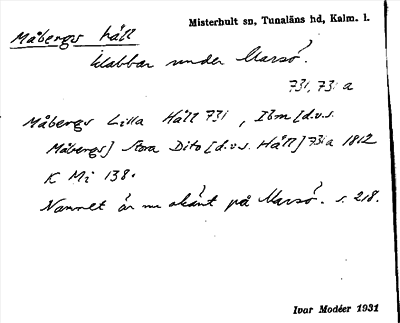 Misterhult sn, Tunaläns hd, Kalm. l.
Måbergs håll
klabbar under Marsö.
73i, 73i a
Måbergs Lilla Håll 73i, Ibm [d.v.s.
Måbergs] Stora Dito [d.v.s. Håll] 73i a 1812
K Mi 138.
Namnet är nu okänt på Marsö. s. 218.
Ivar Modéer 1931